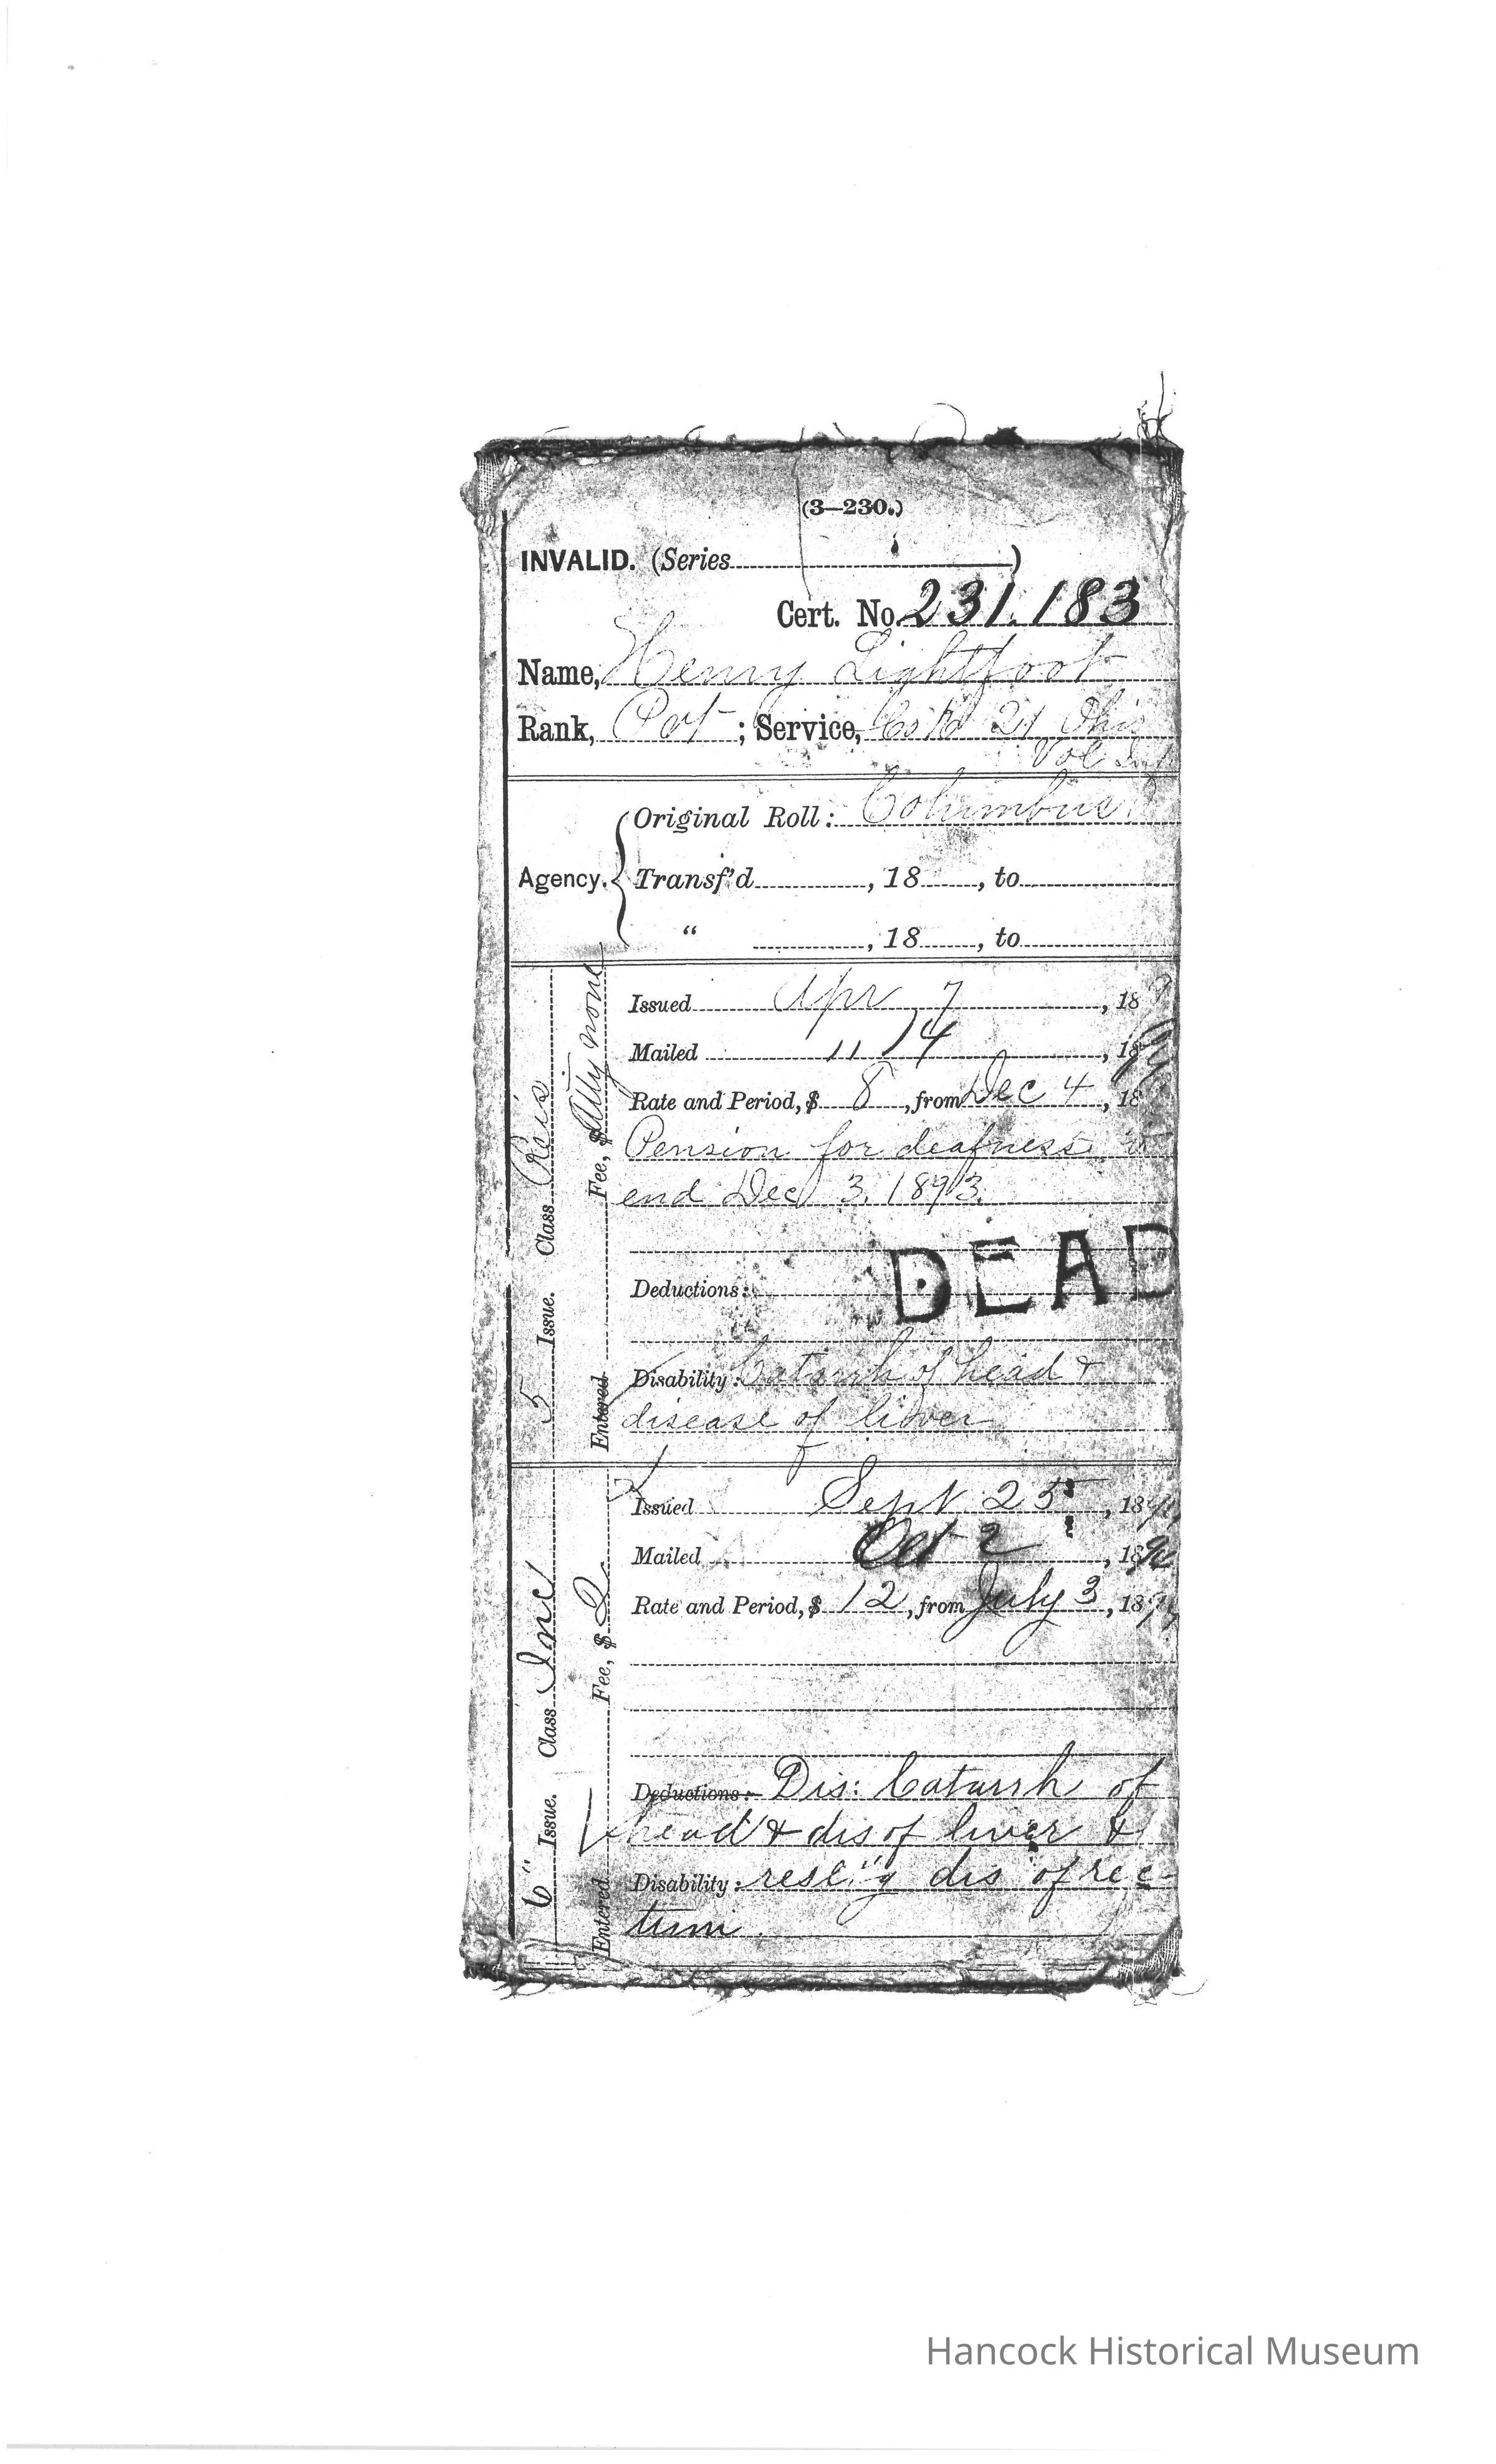 (3—230.)
INVALID. (Series )
Cert. No. 231.183
Name, Henry Lightfoot
Rank, Pvt ; Service, Co 21 Ohio
Vol
Agency.
Original Roll: Columbus
Transf'd , 18 , to
" , 18 , to
5 Issue. Class Reis
Entered Fee, $ Atty none
Issued Apr 7 , 18
Mailed " 14 , 18
Rate and Period, $ 8 , from Dec 4 , 18
Pension for deafness to
end Dec 3. 1893.
DEAD
Deductions:
Disability: Catarrh of head &
disease of liver
6" Issue. Class Inc
Entered Fee, $ 2
Issued Sept. 25 , 18
Mailed Oct 2 , 18
Rate and Period, $ 12 , from July 3 , 18
Deductions:- Dis: Catarrh of
head & dis of liver &
Disability: resl'g dis of rec-
tum.
Hancock Historical Museum